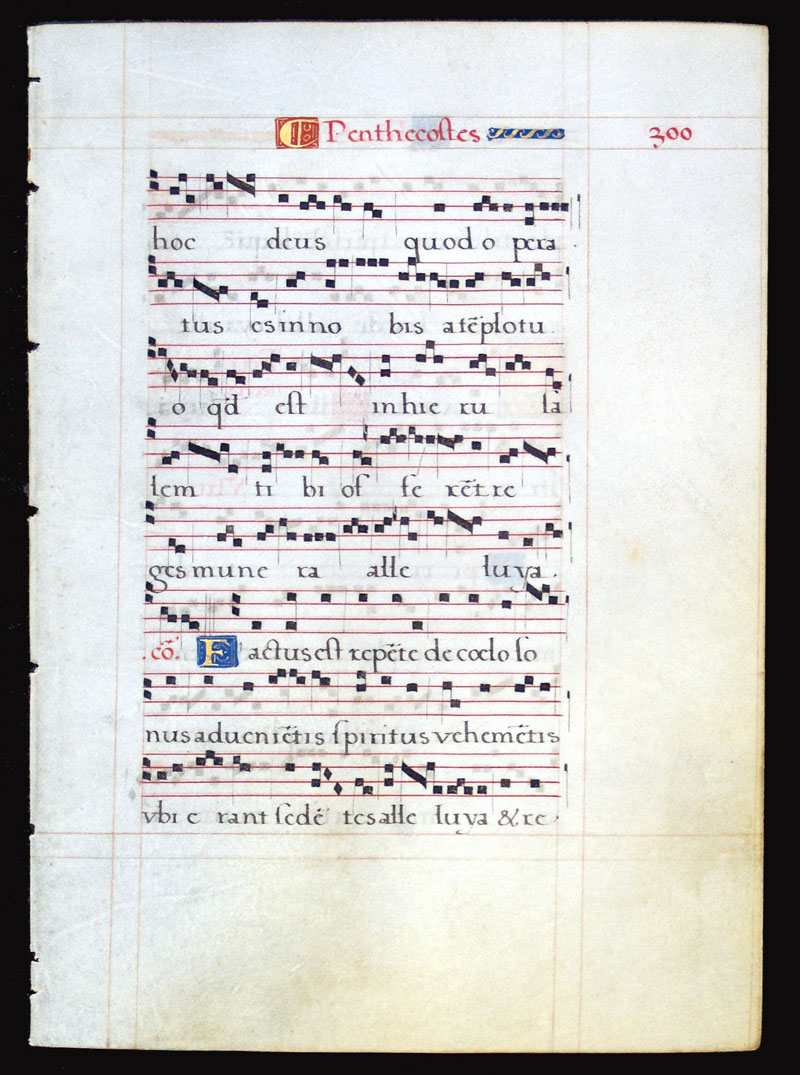 Penthecostes 300
hoc deus quod o pera
tus es in no bis a tẽplo tu
o qd̃ est in hie ru sa
lem ti bi of fe rẽt re
ges mune ra alle luya.
.cõ. Factus est repẽte de cœlo so
nus aduenĩẽtis spiritus vehemẽtis
vbi e rant sedẽ tes alle luya & re